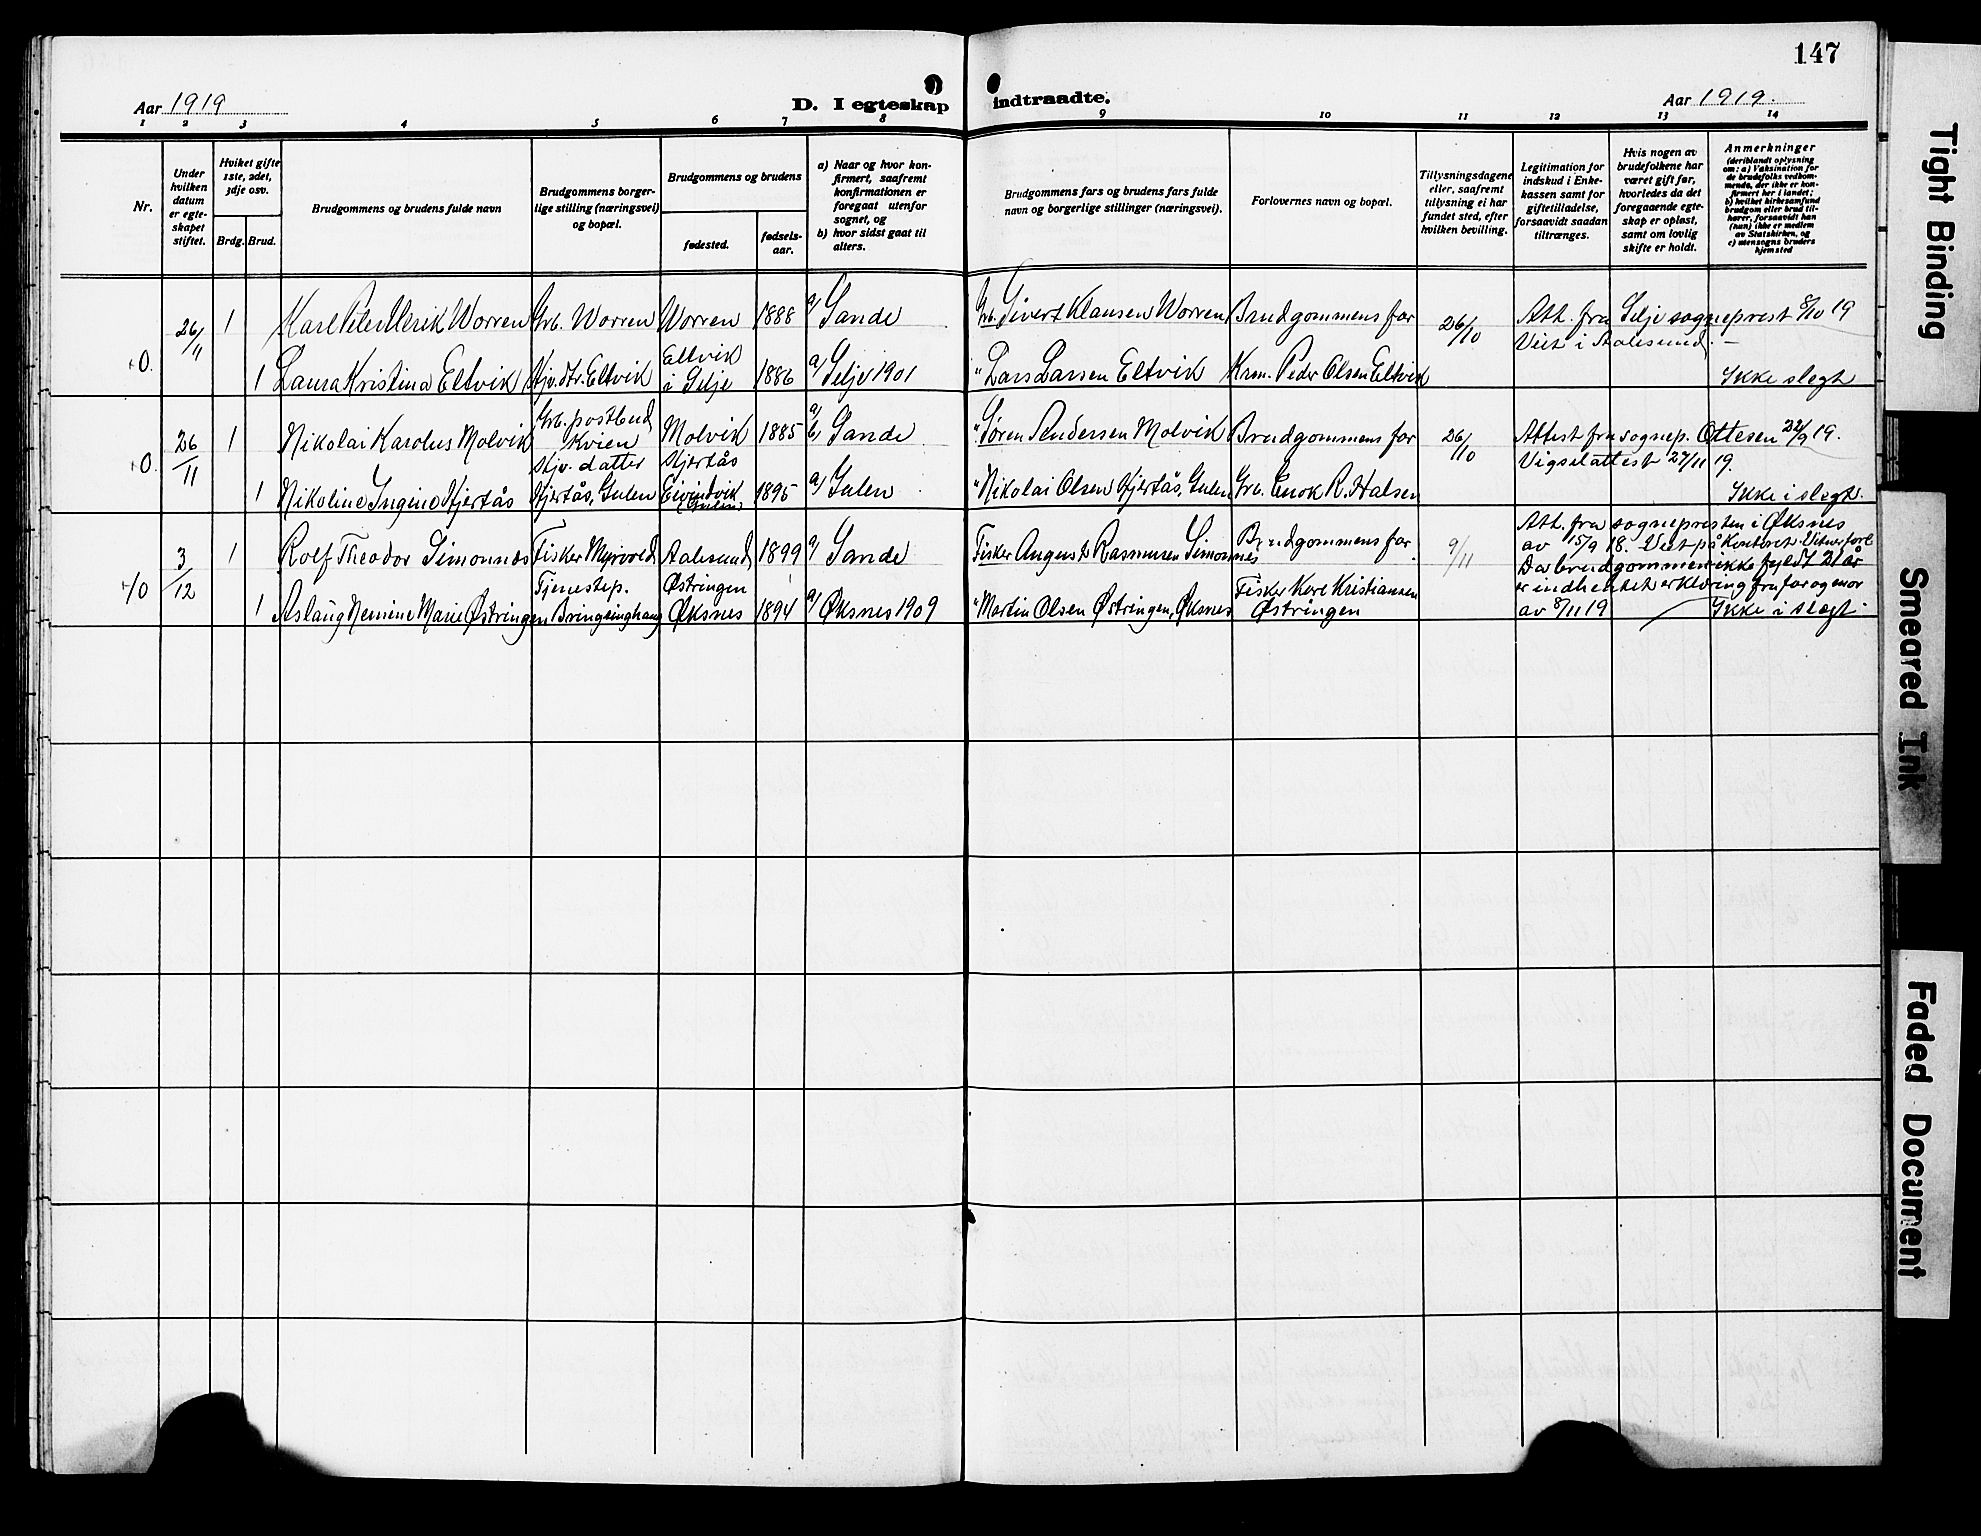 147
Aar 1919
D. I egteskap indtraadte.
Aar 1919.
1 2 3 4 5 6 7 8 9 10 11 12 13 14
Nr.
Under
hvilken
datum
er egte-
skapet
stiftet.
Hvilket gifte
1ste, 2det,
3dje osv.
Brdg. Brud.
Brudgommens og brudens fulde navn
Brudgommens borger-
lige stilling (næringsvei)
og bopæl.
Brudgommens og brudens
fødested.
fødsels-
aar.
a) Naar og hvor kon-
firmert, saafremt
konfirmationen er
foregaat utenfor
sognet, og
b) hvor sidst gaat til
alters.
Brudgommens fars og brudens fars fulde
navn og borgerlige stillinger (næringsvei).
Forlovernes navn og bopæl.
Tillysningsdagene
eller, saafremt
tillysning ei har
fundet sted, efter
hvilken bevilling.
Legitimation for
indskud i Enke-
kassen samt for
giftetilladelse,
forsaavidt saadan
tiltrænges.
Hvis nogen av
brudefolkene har
været gift før,
hvorledes da det
foregaaende egte-
skap er opløst,
samt om lovlig
skifte er holdt.
Anmerkninger
(deriblandt oplysning
om: a) Vaksination for
de brudefolks vedkom-
mende, der ikke er kon-
firmert her i landet;
b) hvilket kirkesamfund
brudgom eller brud til-
hører, forsaavidt han
(hun) ikke er medlem
av Statskirken, og
c) utensogns bruders
hjemsted
26/11 1 Karl Peter Ulrik Worren Grb. Worren Worren 1888 a/ Sande Grb. Sivert Klausen Worren Brudgommens far 26/10 Att. fra Selje sogneprest 8/10 19
Viet i Aalesund.
+0. 1 Laura Kristina Eltvik Hjv. dtr. Eltvik Eltvik i Selje 1886 a/ Selje 1901 " Lars Larsen Eltvik Krm. Peder Olsen Eltvik Ikke slegt
+0. 26/11 1 Nikolai Karolus Molvik Grb. postbud Kvien Molvik 1885 a/ b/ Sande " Søren Andersen Molvik Brudgommens far 26/10 Attest fra sognep. Ottesen 22/9 19.
Vigselattest 27/11 19.
1 Nikoline Ingine Hjertås Hjv. datter Hjertås, Gulen Hjertås Eivindvik (Gulen) 1895 a/ Gulen " Nikolai Olsen Hjertås, Gulen Grb. Enok R. Halsen Ikke i slegt.
+/0 3/12 1 Rolf Theodor Simonnes Fisker Myrvold Aalesund 1899 a/ Sande Fisker August Rasmussen Simonnes Brudgommens far 9/11 Att. fra sognepresten i Øksnes
av 15/9 18. Viet på kontoret
Da brudgommen ikke fyldt 21 år
er indhentet erklæring fra far og mor
av 8/11 19
1 Aslaug Nensine Marie Østringen Tjenestep. Bringsinghaug Østringen Øksnes 1894 a/ Øksnes 1909 " Martin Olsen Østringen, Øksnes Fisker Kore Kristiansen Østringen Ikke i slegt.
Tight Binding
Smeared Ink
Faded Document